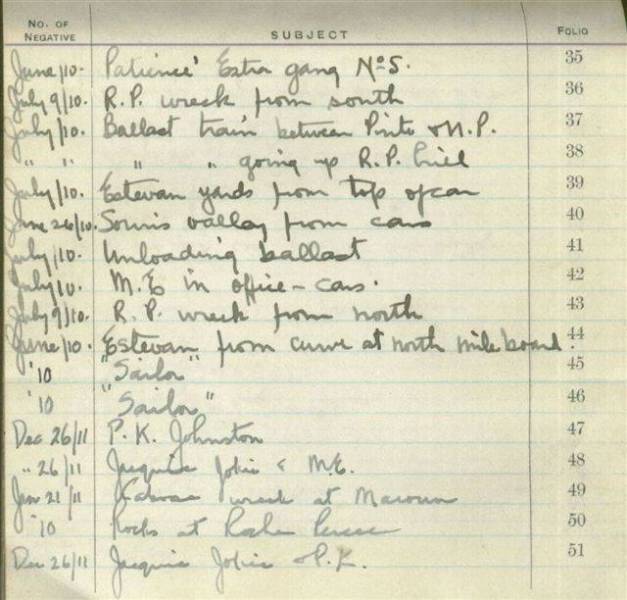 No. OF NEGATIVE SUBJECT FOLIO
June/10. Patience' Extra gang No 5. 35
July 9/10. R.P. wreck from south 36
July/10. Ballast train between Pinto & N.P. 37
" " " " going up R.P. hill 38
July/10. Estevan yards from top of car 39
June 26/10. Souris valley from cars 40
July/10. Unloading ballast 41
July/10. M.E in office-cars. 42
July 9/10. R.P. wreck from north 43
June/10. Estevan from curve at north mile board. 44
'10 "Sailor" 45
'10 "Sailor" 46
Dec 26/11 P.K. Johnston 47
" 26/11 Jacquie Jolie & M.E. 48
Jan 21/11 wreck at Maroun 49
'10 Rocks at Roche Percee 50
Dec 26/11 Jacquie Jolie & P.K. 51